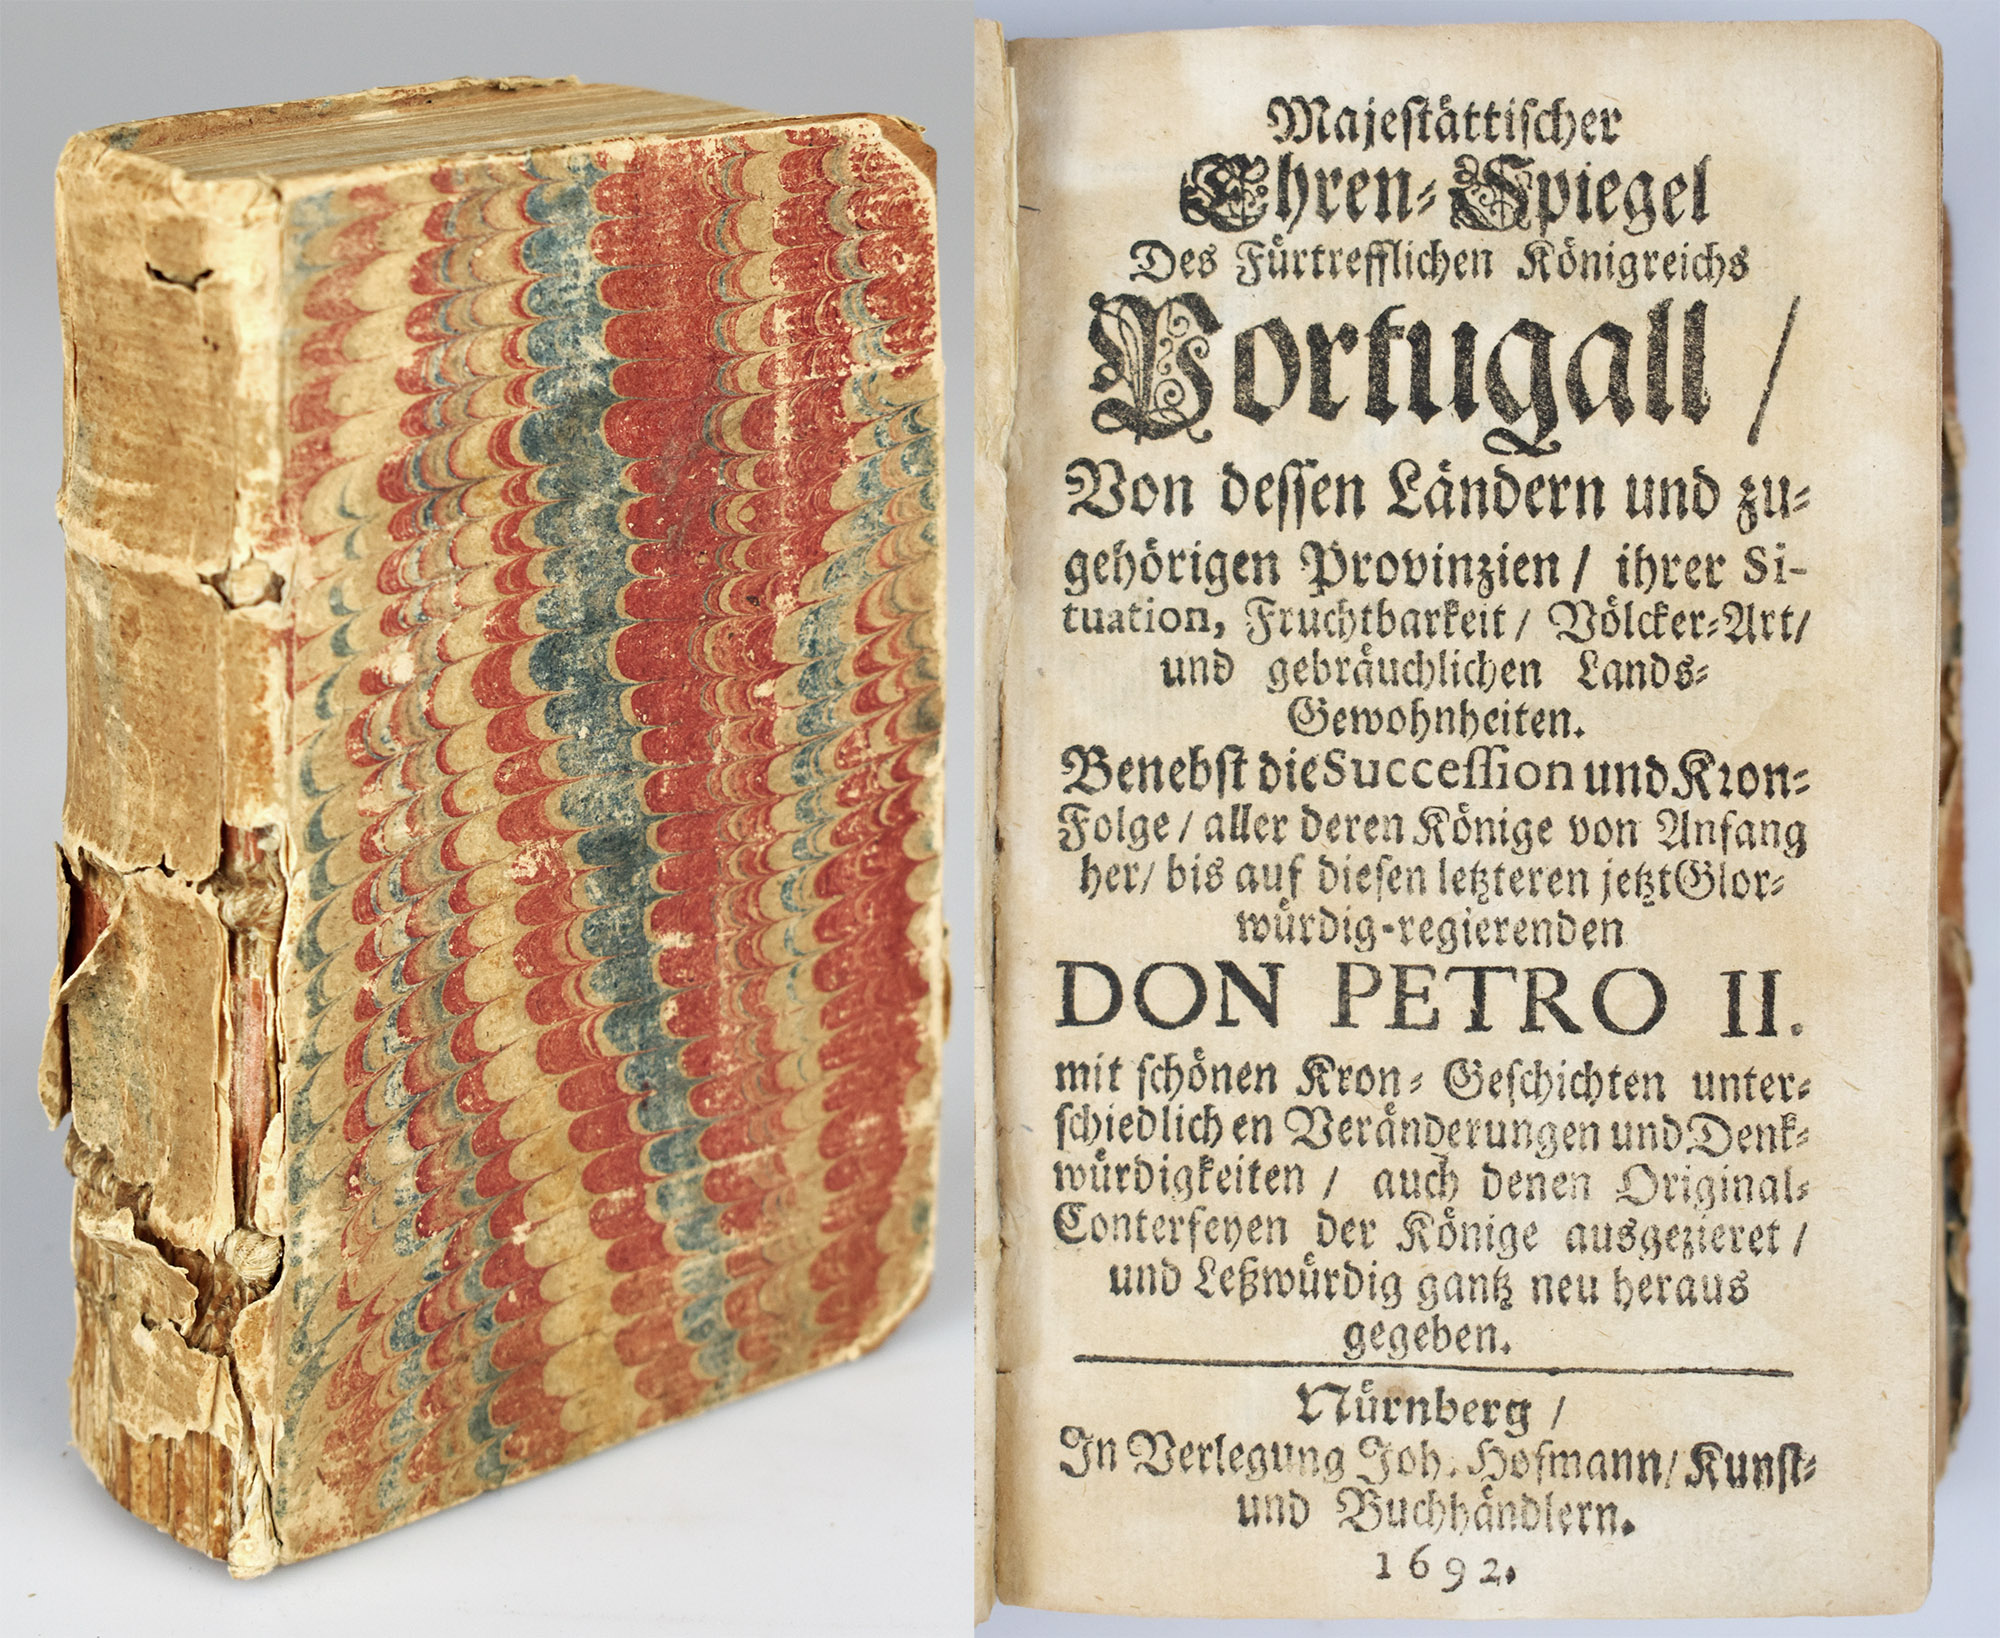 Majeſtättiſcher
Ehren-Spiegel
Des Fürtrefflichen Königreichs
Portugall /
Von deſſen Ländern und zu-
gehörigen Provinzien / ihrer Si-
tuation, Fruchtbarkeit / Völcker-Art /
und gebräuchlichen Lands-
Gewohnheiten.
Benebſt die Succeſſion und Kron-
Folge / aller deren Könige von Anfang
her / bis auf dieſen letzteren jetzt Glor-
würdig-regierenden
DON PETRO II.
mit ſchönen Kron-Geſchichten unter-
ſchiedlichen Veränderungen und Denk-
würdigkeiten / auch denen Original-
Conterfeyen der Könige ausgezieret /
und Leßwürdig gantz neu heraus
gegeben.
Nürnberg /
In Verlegung Joh. Hofmann / Kunſt-
und Buchhändlern.
1692.